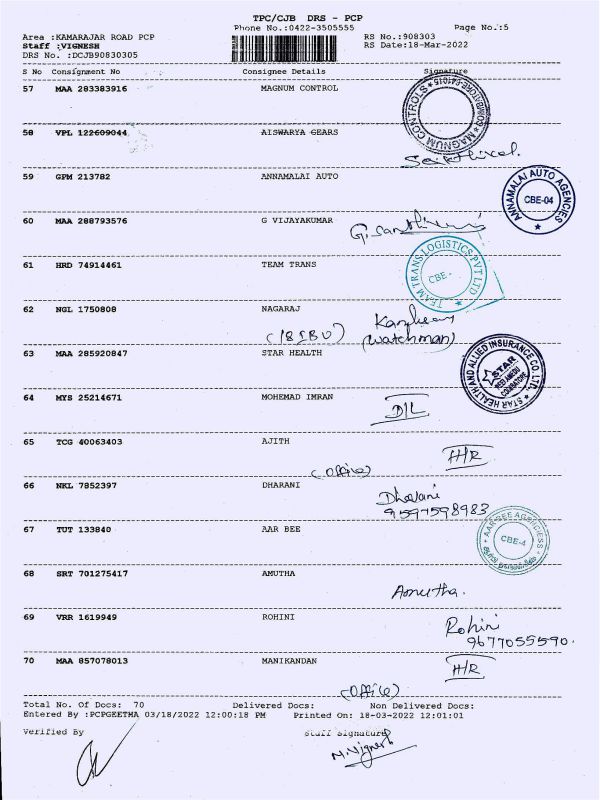 TPC/CJB DRS - PCP
Phone No.:0422-3505555
Page No.:5
Area :KAMARAJAR ROAD PCP
RS No.:908303
Staff :VIGNESH
RS Date:18-Mar-2022
DRS No. :DCJB90830305
S No Consignment No Consignee Details Signature
57 MAA 283383916 MAGNUM CONTROL
MAGNUM CONTROLS
58 VPL 122609044 AISWARYA GEARS
59 GPM 213782 ANNAMALAI AUTO
ANNAMALAI AUTO AGENCIES
CBE-04
60 MAA 288793576 G VIJAYAKUMAR
61 HRD 74914461 TEAM TRANS
TEAM TRANS LOGISTICS PVT LTD
CBE -
62 NGL 1750808 NAGARAJ
(watchman)
63 MAA 285920847 STAR HEALTH
STAR HEALTH AND ALLIED INSURANCE CO. LTD.
STAR
PEELAMEDU
COIMBATORE
64 MYS 25214671 MOHEMAD IMRAN
D/L
65 TCG 40063403 AJITH
H/R
(Office)
66 NKL 7852397 DHARANI
Dharani
9597598983
67 TUT 133840 AAR BEE
AAR BEE AGENCIESS
CBE-4
68 SRT 701275417 AMUTHA
Amutha.
69 VRR 1619949 ROHINI
Rohini
9677055590.
70 MAA 857078013 MANIKANDAN
H/R
(Office)
Total No. Of Docs: 70 Delivered Docs: Non Delivered Docs:
Entered By :PCPGEETHA 03/18/2022 12:00:18 PM Printed On: 18-03-2022 12:01:01
Verified By Staff Signature
M.Vignesh